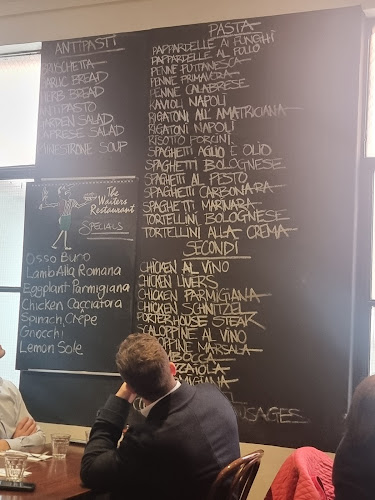 ANTIPASTI
BRUSCHETTA
GARLIC BREAD
HERB BREAD
ANTIPASTO
GARDEN SALAD
CAPRESE SALAD
MINESTRONE SOUP
The
Waiters
Restaurant
SPECIALS
Osso Buro
Lamb Alla Romana
Eggplant Parmigiana
Chicken Cacciatora
Spinach Crêpe
Gnocchi
Lemon Sole
PASTA
PAPPARDELLE AI FUNGHI
PAPPARDELLE AL POLLO
PENNE PUTTANESCA
PENNE PRIMAVERA
PENNE CALABRESE
RAVIOLI NAPOLI
RIGATONI ALL' AMATRICIANA
RIGATONI NAPOLI
RISOTTO PORCINI
SPAGHETTI AGLIO E OLIO
SPAGHETTI BOLOGNESE
SPAGHETTI AL PESTO
SPAGHETTI CARBONARA
SPAGHETTI MARINARA
TORTELLINI BOLOGNESE
TORTELLINI ALLA CREMA
SECONDI
CHICKEN AL VINO
CHICKEN LIVERS
CHICKEN PARMIGIANA
CHICKEN SCHNITZEL
PORTERHOUSE STEAK
SCALOPPINE AL VINO
OPPINE MARSALA
BOCCA
ZAIOLA
MIGIANA
USAGES